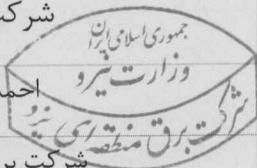 شرکت
جمهوری اسلامی ایران
وزارت نیرو
احمد
شرکت برق منطقه ای یزد
شرکت بر